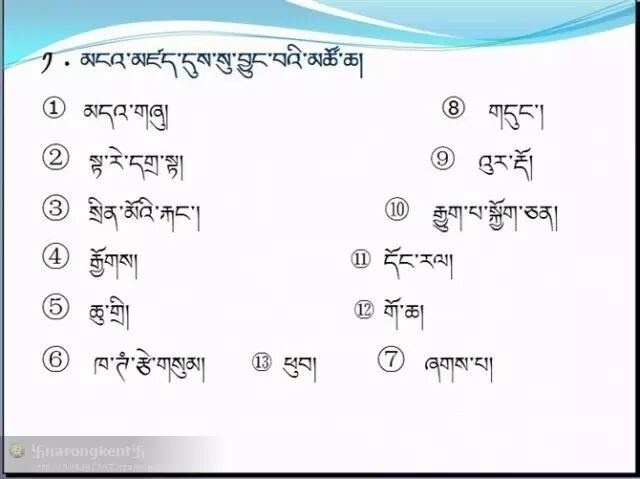 ༡ . མངའ་མཛད་དུས་སུ་བྱུང་བའི་མཚོ་ཆ།
① མདའ་གཞུ། ⑧ གདུང་།
② སྟ་རེ་དགྲ་སྟ། ⑨ འུར་རྡོ།
③ སྲིན་མོའི་རྐང་། ⑩ རྒྱུག་པ་སྐྱོག་ཅན།
④ རྒྱོགས། ⑪ དོང་རལ།
⑤ ཆུ་གྲི། ⑫ གོ་ཆ།
⑥ ཁ་ཊཾ་རྩེ་གསུམ། ⑬ ཕུབ། ⑦ ཞགས་པ།
卐narongkent卐